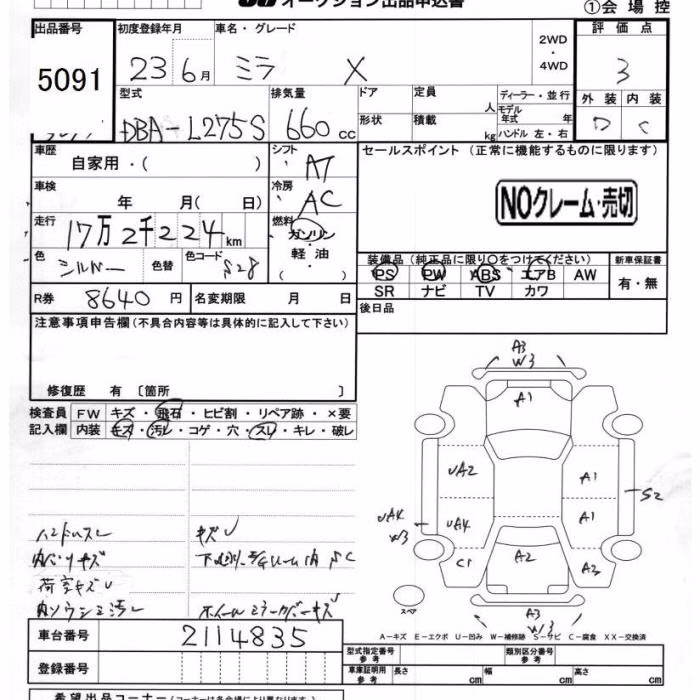 オークション出品申込書
①会場控
出品番号 初度登録年月 車名・グレード 2WD・4WD 評価点
5091 23 6月 ミラ X 3
型式 排気量 ドア 定員 人 ディーラー・並行 外装 内装
DBA-L275S 660cc 形状 積載 kg モデル年式 年 ハンドル 左・右 D C
車歴 自家用・( ) シフト AT セールスポイント (正常に機能するものに限ります)
車検 年 月( 日) 冷房 AC
NOクレーム・売切
走行 17万2千224km 燃料 ガソリン・軽油・( )
色 シルバー 色替 色コード S28
装備品 (純正品に限り○をつけてください) 新車保証書
PS PW ABS エアB AW 有・無
SR ナビ TV カワ
R券 8640円 名変期限 月 日 後日品
注意事項申告欄(不具合内容等は具体的に記入して下さい)
修復歴 有 〔箇所 〕
検査員記入欄 FW キズ・飛石・ヒビ割・リペア跡・×要
内装 キズ・汚レ・コゲ・穴・スレ・キレ・破レ
A3
W3
A1
UA2 A1
S2
UA4 W3 UA4 A1
C1 A2 A3
スペア
A3
W3
ハンドルスレ キズ
内バリキズ
荷室キズ
A-キズ E-エクボ U-凹み W-補修跡 S-サビ C-腐食 XX-交換済
車台番号 2114835
型式指定番号 参考 類別区分番号 参考
登録番号
車庫証明用 参考 長さ cm 幅 cm 高さ cm
希望出品コーナー